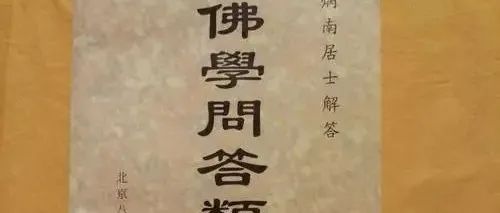 炳南居士解答
佛學問答類
北京八